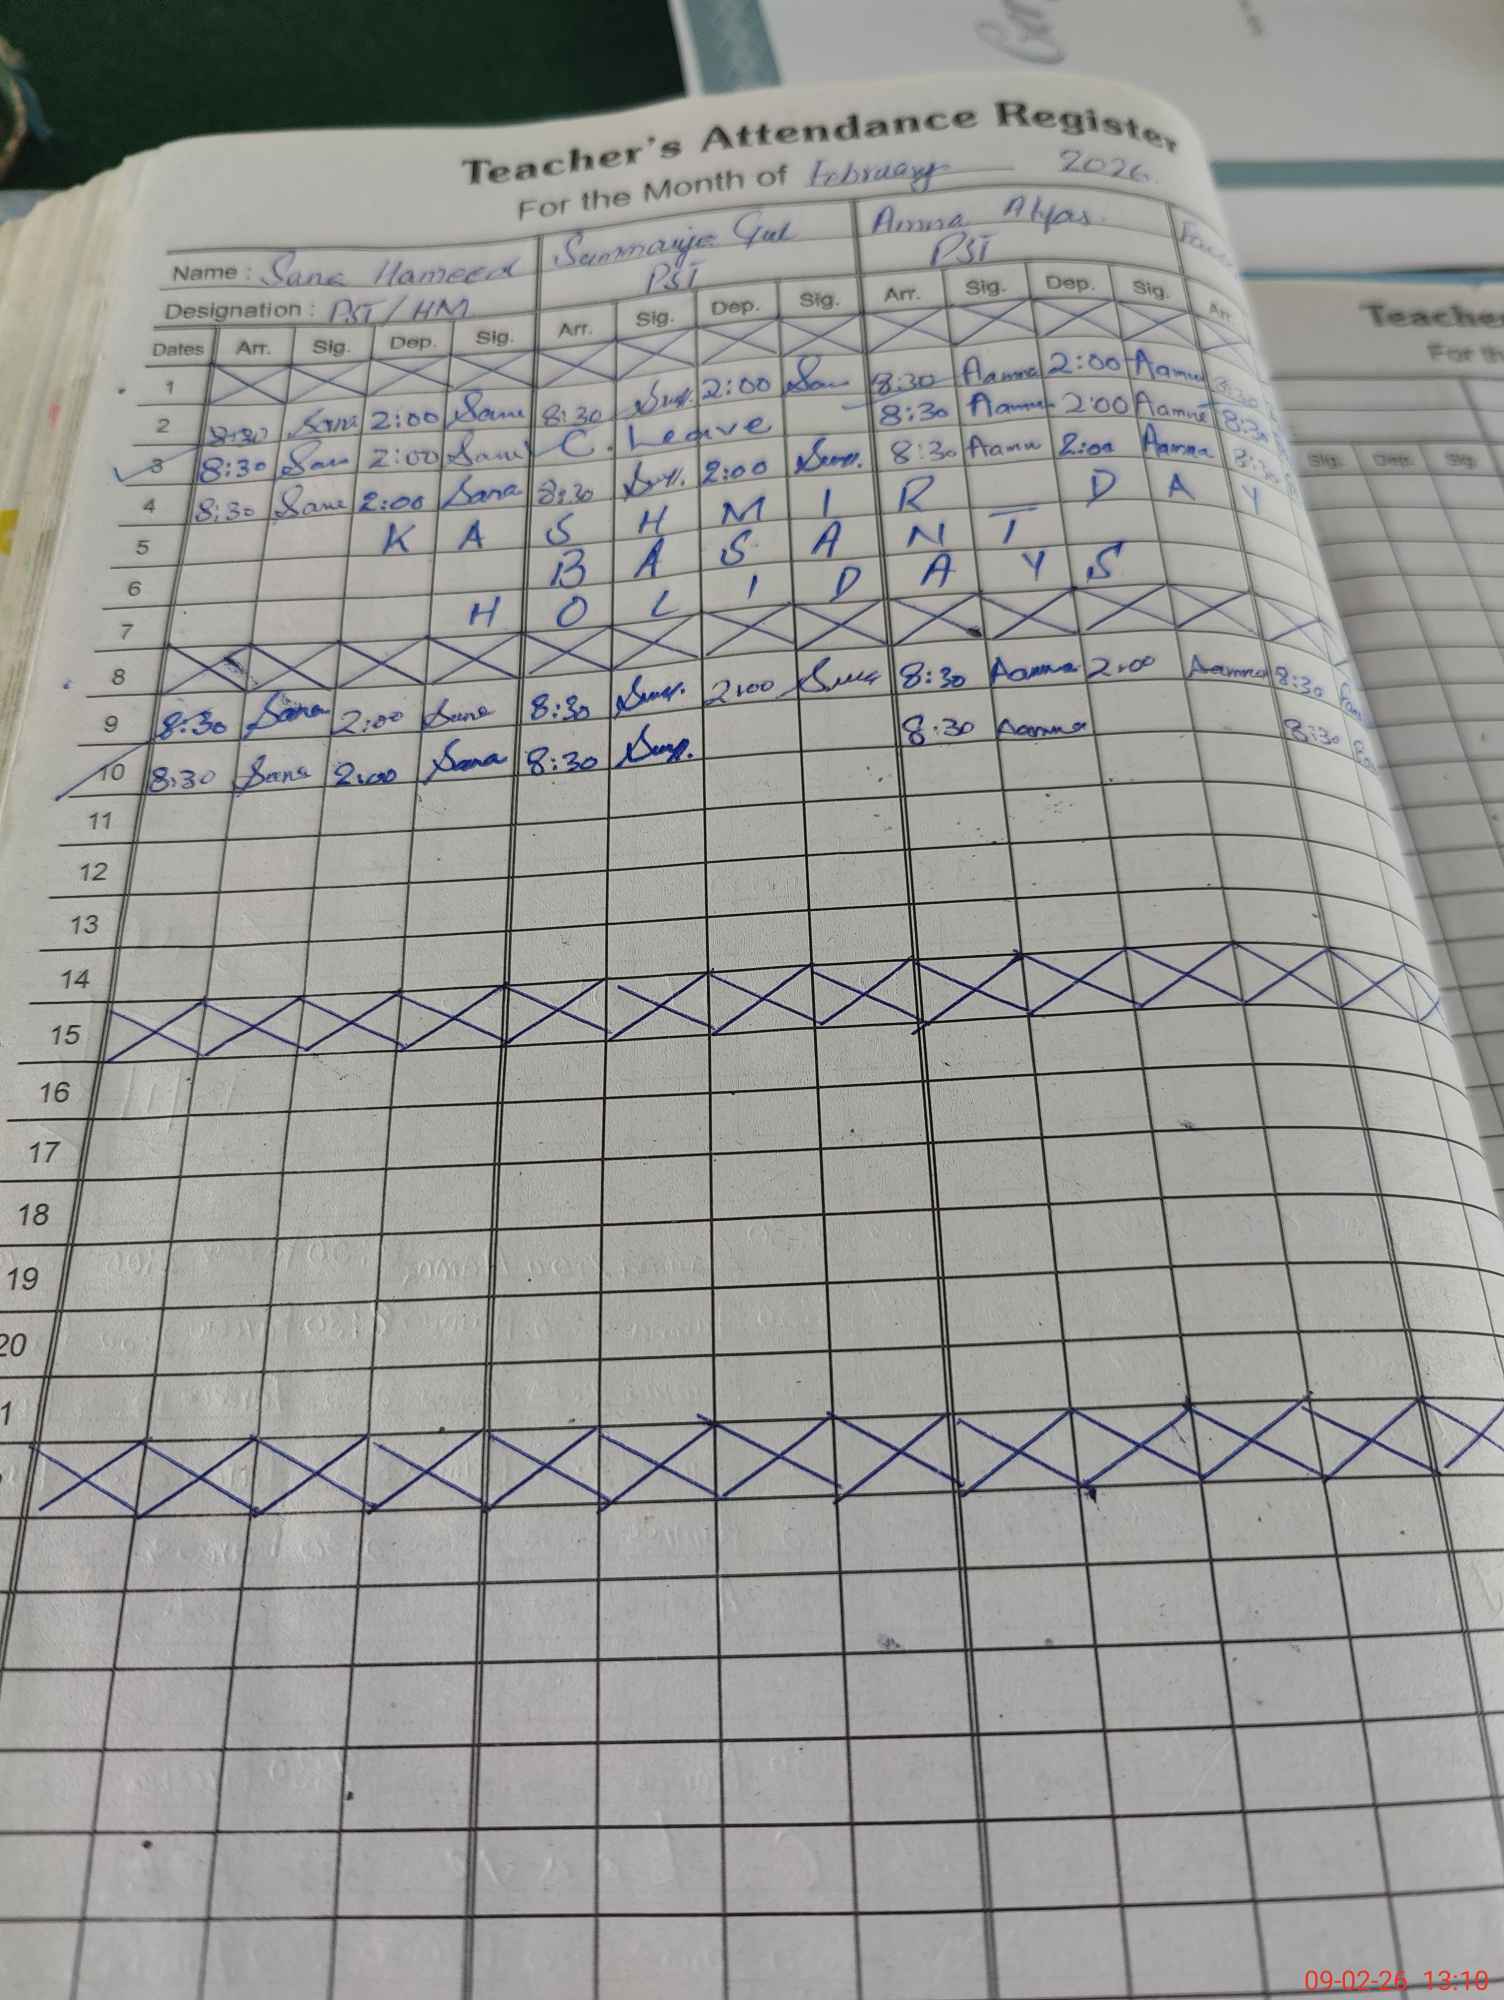 Teacher's Attendance Register
For the Month of February 2026
Name : Sana Hameed Summaiya Gul Amna Alyas
Designation : PST / HM PST PST
Dates Arr. Sig. Dep. Sig. Arr. Sig. Dep. Sig. Arr. Sig. Dep. Sig. Arr.
1
2 8:30 Sana 2:00 Sana 8:30 2:00 8:30 Aamna 2:00 Aamna 8:30
3 8:30 Sana 2:00 Sana C. Leave 8:30 Aamna 2:00 Aamna 8:30
4 8:30 Sana 2:00 Sana 8:30 2:00 8:30 Aamna 2:00 Aamna 8:30
5 K A S H M I R D A Y
6 B A S A N T
7 H O L I D A Y S
8
9 8:30 Sana 2:00 Sana 8:30 2:00 8:30 Aamna 2:00 Aamna 8:30
10 8:30 Sana 2:00 Sana 8:30 8:30 Aamna 8:30
11
12
13
14
15
16
17
18
19
20
1
Teache
For th
Sig. Dep. Sig.
09-02-26 13:10